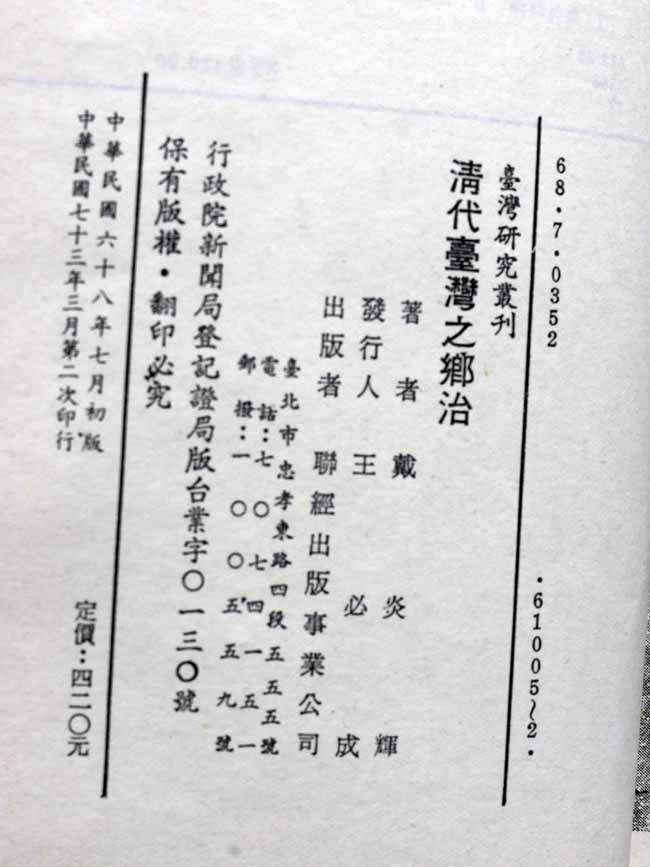 68・7・0352
・61005～2・
臺灣研究叢刊
清代臺灣之鄉治
著者 戴炎輝
發行人 王必成
出版者 聯經出版事業公司
臺北市忠孝東路四段五五五號
電話：七〇七四一五一
郵撥：一〇〇五五九號
行政院新聞局登記證局版台業字〇一三〇號
保有版權・翻印必究
中華民國六十八年七月初版
中華民國七十三年三月第二次印行
定價：四二〇元